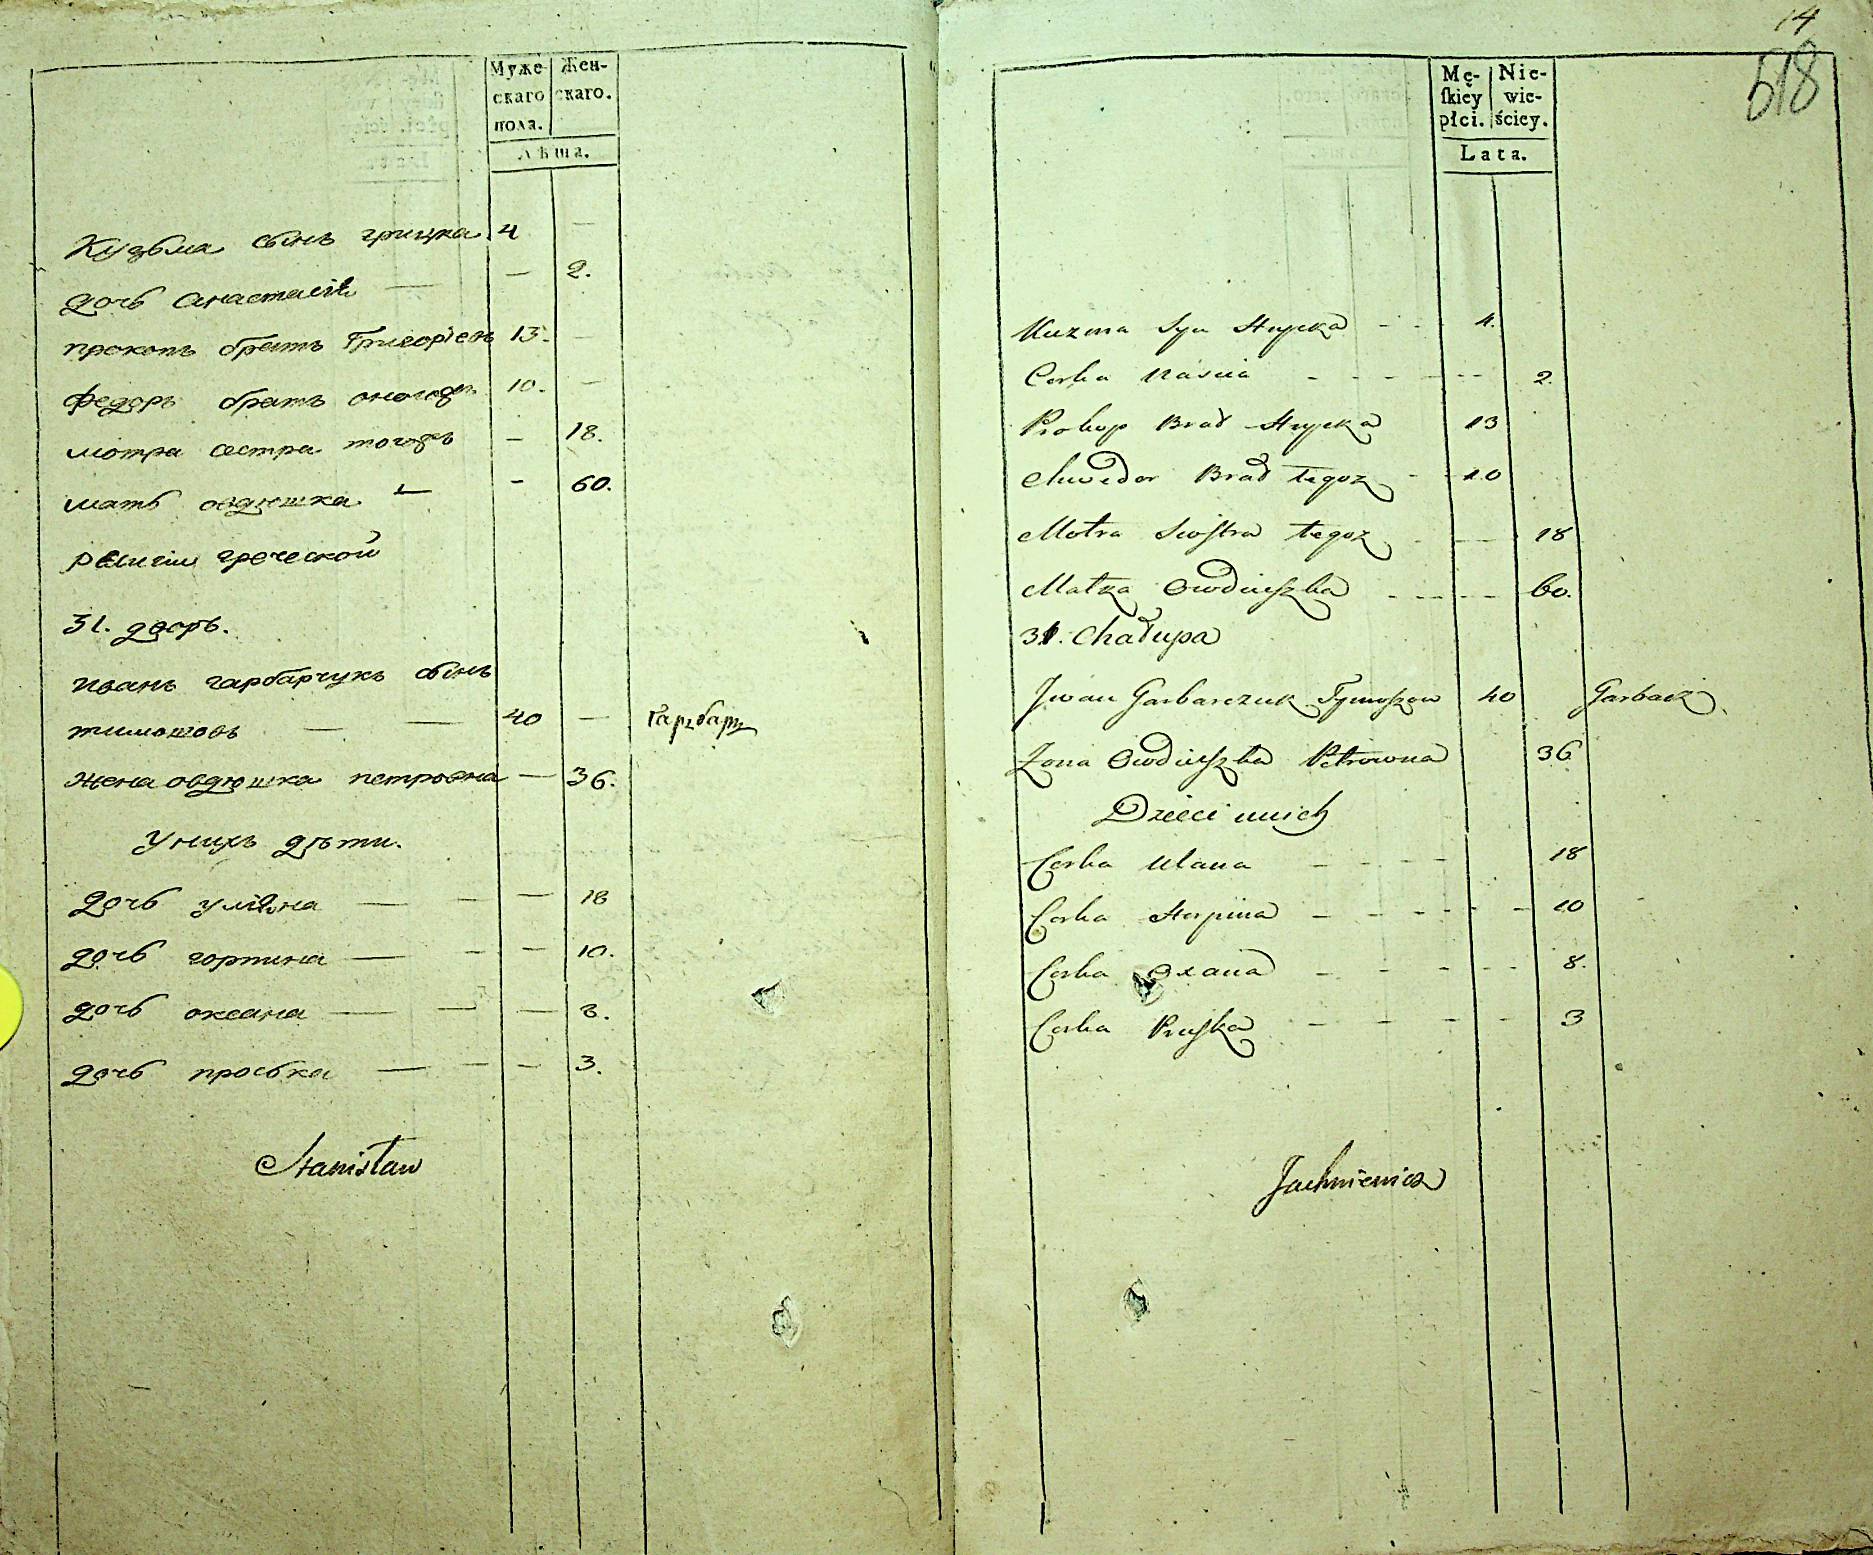 Муже- Жен-
скаго скаго.
пола.
Лѣта.
Кузьма сынъ грицка 4 —
дочь Анастасія — — 2.
прокопъ братъ Григоріевъ 13. —
федоръ братъ оного 10. —
мотра сестра того — 18.
мать овдюшка — - 60.
религіи греческой
31. дворъ.
иванъ гарбарчукъ сынъ
тимошовъ — — 40 — Гарбарз
жена овдюшка петровна — 36.
У нихъ дѣти.
дочь уліяна — - — 18
дочь горпина — - — 10.
дочь оксана — — — 8.
дочь проська — - — 3.
Stanisław
14
518
Mę- Nie-
skiey wie-
płci. ściey.
Lata.
Kuzma Syn Hrycka - - 4.
Corka Nascia - - - - - 2.
Prokop Brat Hrycka 13
Chwedor Brat tegoz - - 10
Motra Siostra tegoz - — 18
Matka Owdiuszka - - - - - 60.
31. Chałupa
Jwan Garbarczuk Tymoszow 40 Garbarz
Zona Owdiuszka Petrowna 36
Dzieci unich
Corka Ulana - - - - 18
Corka Horpina - - - - - - 10
Corka Oxana - - - - - 8.
Corka Pruska - - - - - 3
Jachniewicz